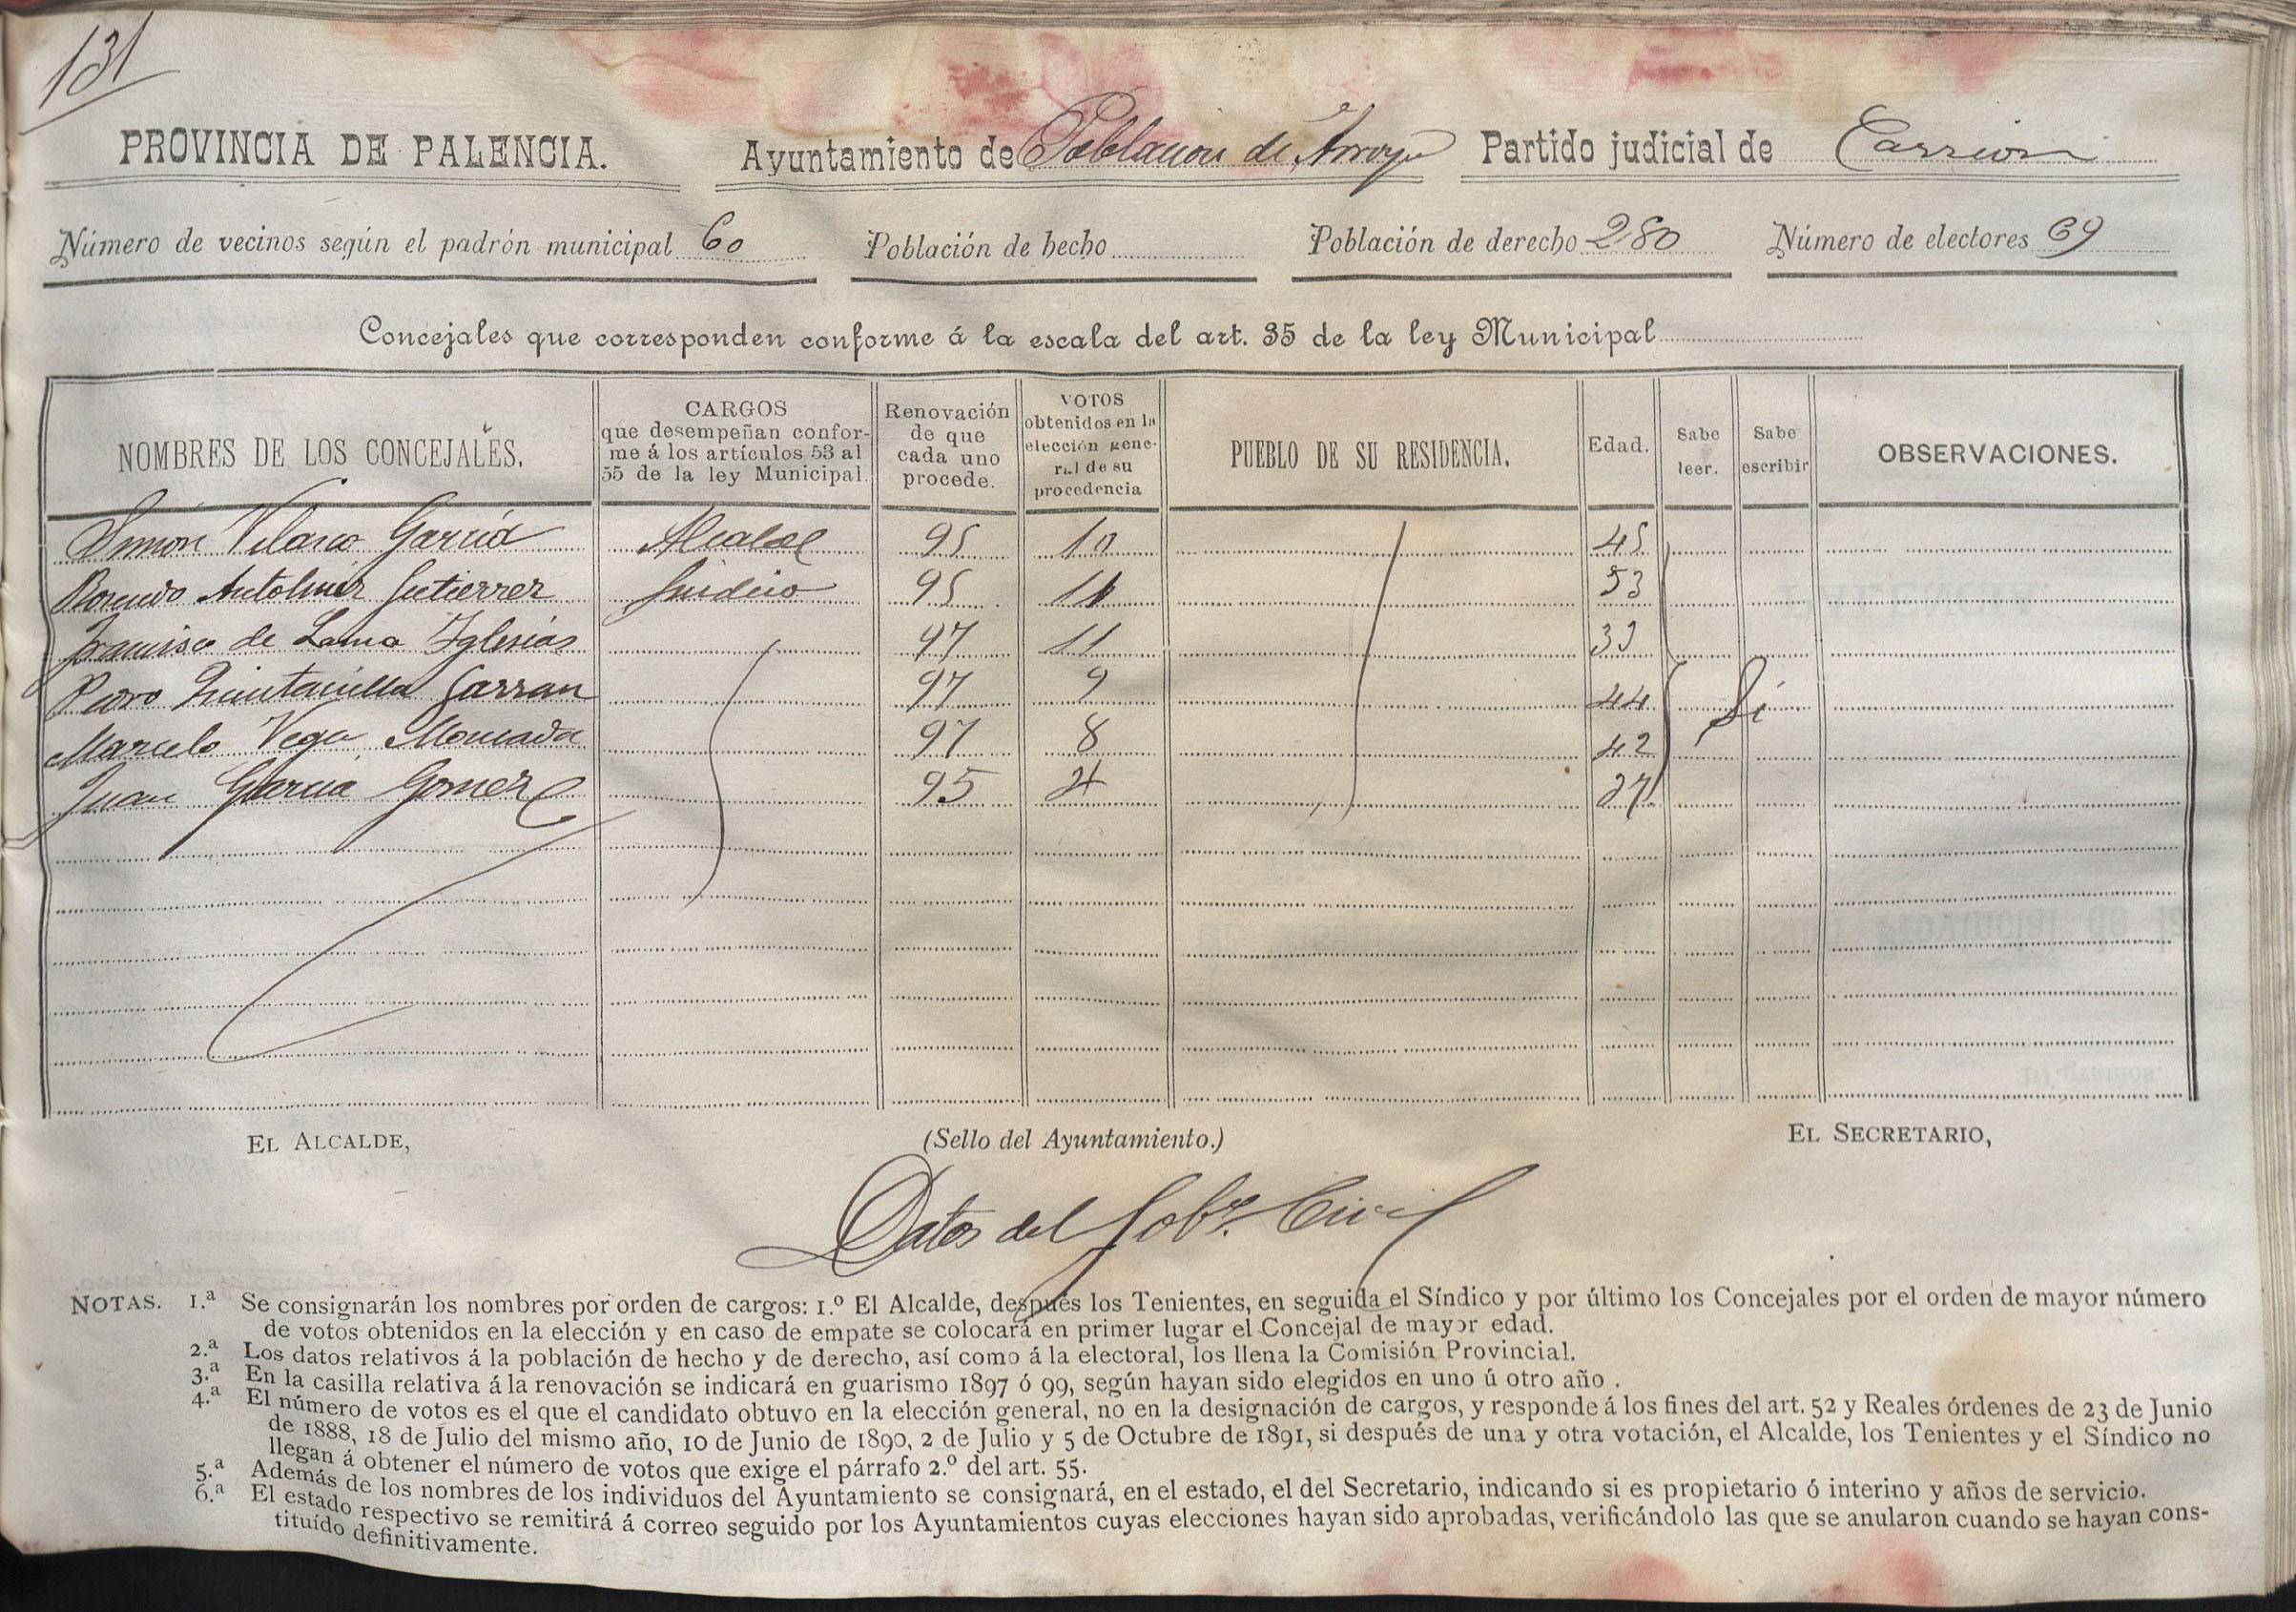 131
PROVINCIA DE PALENCIA. Ayuntamiento de Poblacion de Arroyo Partido judicial de Carrion
Número de vecinos según el padrón municipal 60 Población de hecho Población de derecho 280 Número de electores 69
Concejales que corresponden conforme á la escala del art. 35 de la ley Municipal
NOMBRES DE LOS CONCEJALES. CARGOS que desempeñan confor-me á los artículos 53 al 55 de la ley Municipal. Renovación de que cada uno procede. VOTOS obtenidos en la elección gene-ral de su procedencia PUEBLO DE SU RESIDENCIA. Edad. Sabe leer. Sabe escribir OBSERVACIONES.
Simón Velasco García Alcalde 95 10 45
Antolinez Gutierrez Sindico 95 53
Francisco de Lama Iglesias 97 11 33
Pedro Quintanilla Garran 97 9 44 Si
Marcelo Vega Moncada 97 8 42
Juan Garcia Gomez 95 4 27
EL ALCALDE, (Sello del Ayuntamiento.) EL SECRETARIO,
Datos del Gobno. Civil
NOTAS. 1.ª Se consignarán los nombres por orden de cargos: 1.º El Alcalde, después los Tenientes, en seguida el Síndico y por último los Concejales por el orden de mayor número
de votos obtenidos en la elección y en caso de empate se colocará en primer lugar el Concejal de mayor edad.
2.ª Los datos relativos á la población de hecho y de derecho, así como á la electoral, los llena la Comisión Provincial.
3.ª En la casilla relativa á la renovación se indicará en guarismo 1897 ó 99, según hayan sido elegidos en uno ú otro año .
4.ª El número de votos es el que el candidato obtuvo en la elección general, no en la designación de cargos, y responde á los fines del art. 52 y Reales órdenes de 23 de Junio
de 1888, 18 de Julio del mismo año, 10 de Junio de 1890, 2 de Julio y 5 de Octubre de 1891, si después de una y otra votación, el Alcalde, los Tenientes y el Síndico no
llegan á obtener el número de votos que exige el párrafo 2.º del art. 55.
5.ª Además de los nombres de los individuos del Ayuntamiento se consignará, en el estado, el del Secretario, indicando si es propietario ó interino y años de servicio.
6.ª El estado respectivo se remitirá á correo seguido por los Ayuntamientos cuyas elecciones hayan sido aprobadas, verificándolo las que se anularon cuando se hayan cons-
tituído definitivamente.